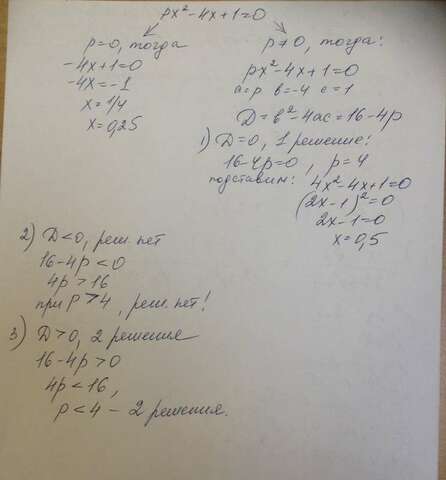 px²-4x+1=0
p=0, тогда
-4x+1=0
-4x=-1
x=1/4
x=0,25
p≠0, тогда:
px²-4x+1=0
a=p в=-4 c=1
D=в²-4ac=16-4p
1) D=0, 1 решение:
16-4p=0, p=4
подставим: 4x²-4x+1=0
(2x-1)²=0
2x-1=0
x=0,5
2) D<0, реш. нет
16-4p<0
4p>16
при p>4, реш. нет!
3) D>0, 2 решения
16-4p>0
4p<16,
p<4 - 2 решения.